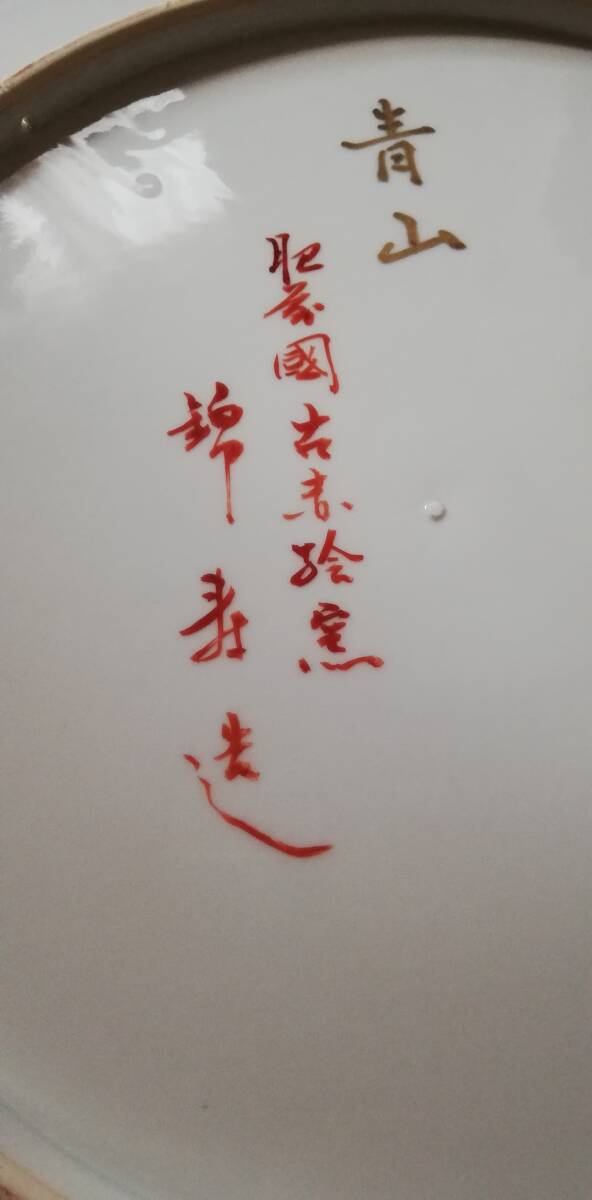 青山
肥前國古赤絵窯
錦寿造